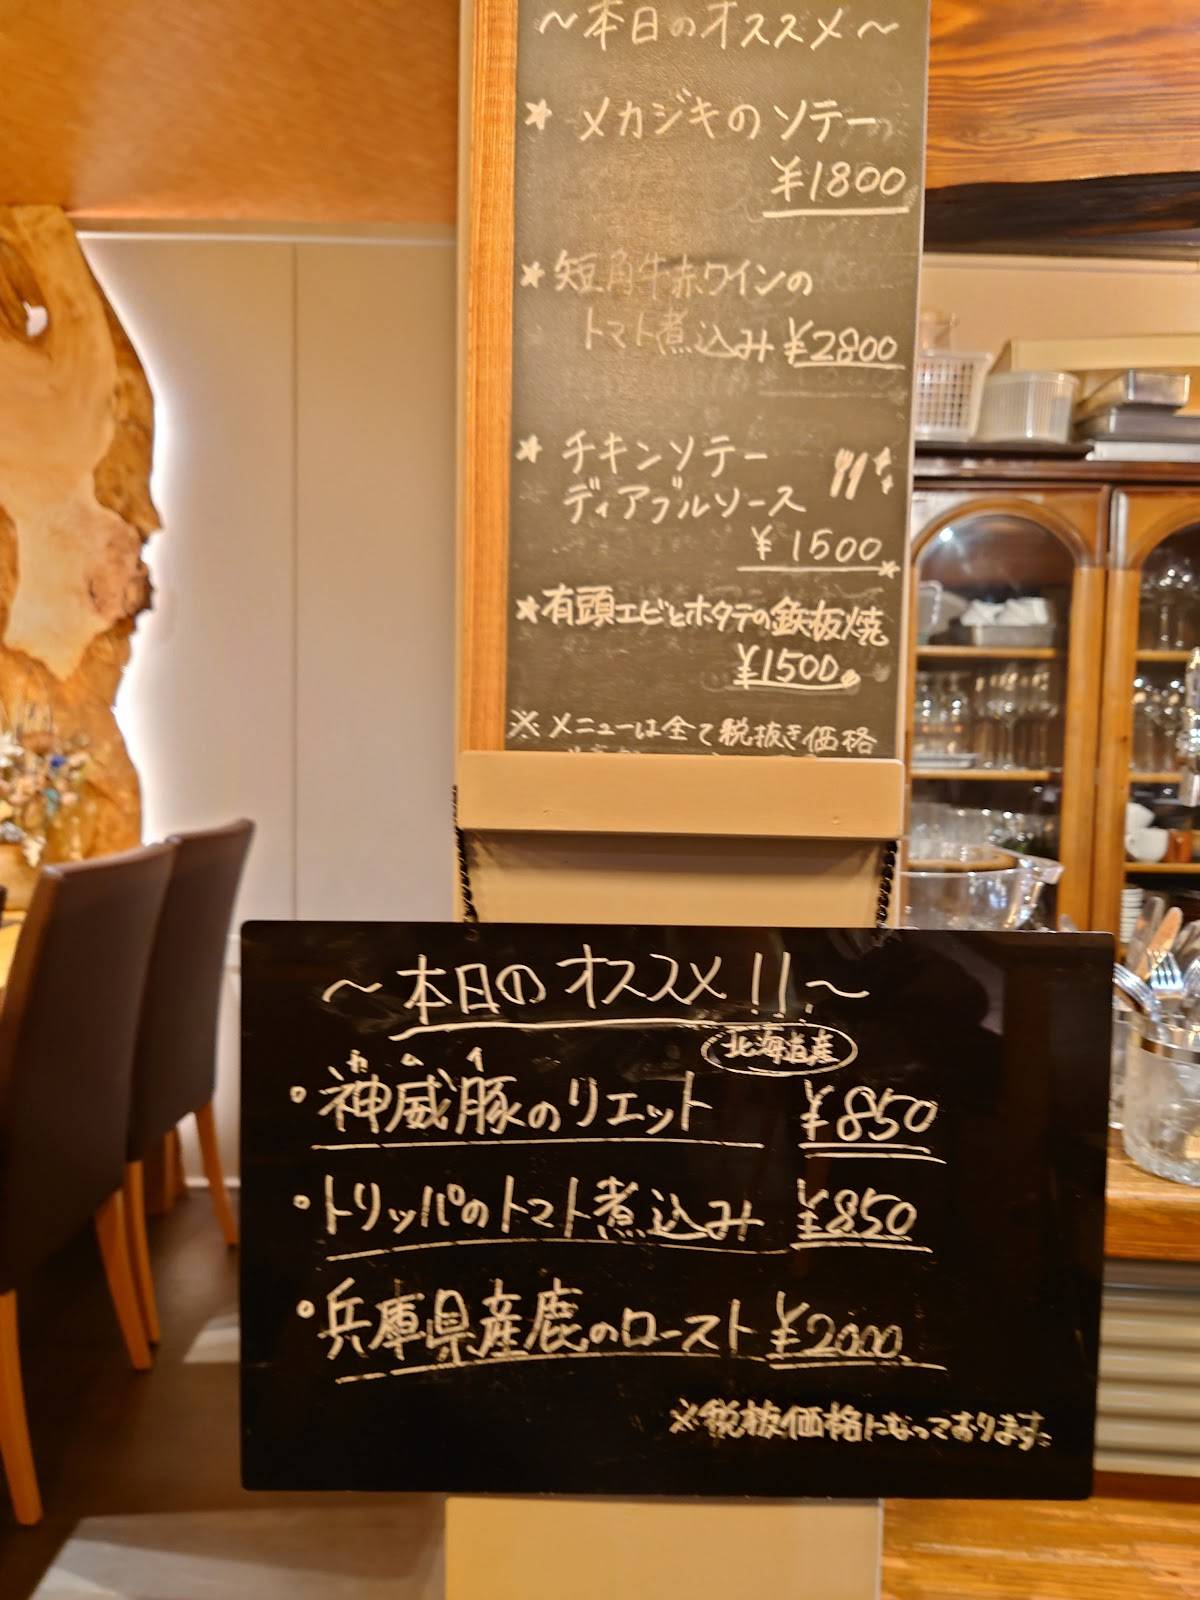 ～本日のオススメ～
★ メカジキのソテー
¥1800
★ 短角牛赤ワインの
トマト煮込み ¥2800
★ チキンソテー
ディアブルソース
¥1500
★ 有頭エビとホタテの鉄板焼
¥1500
※メニューは全て税抜き価格
～本日のオススメ！！～
北海道産
カムイ
・神威豚のリエット ¥850
・トリッパのトマト煮込み ¥850
・兵庫県産鹿のロースト ¥2000
※税抜価格になっております。